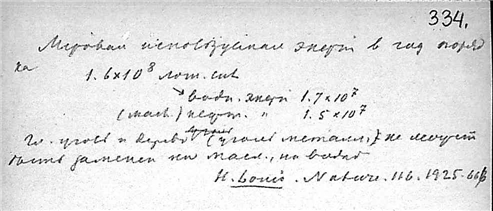 334.
Мировая использумая энерг в год поряд
ка
1.6×10⁸ лош. сил
водн. энерг 1.7×10⁷
(масл.) нефт. " 1.5×10⁷
уголь и дерево уголь металл, не могут
быть заменен на масл., на водян
H. Louis. Nature. 116. 1925.